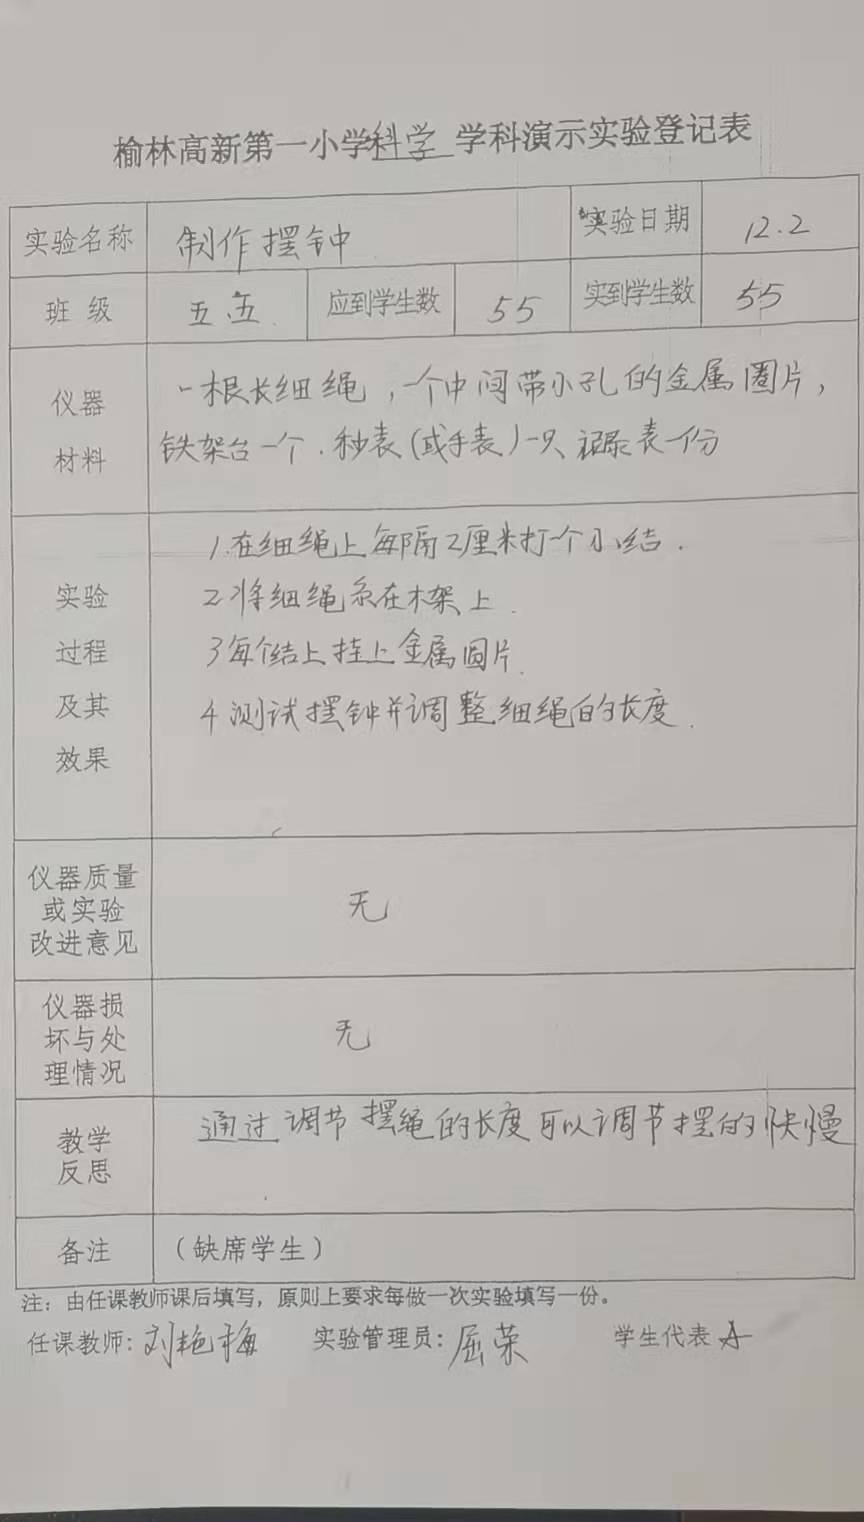 榆林高新第一小学科学 学科演示实验登记表
实验名称 制作摆钟 实验日期 12.2
班 级 五.五 应到学生数 55 实到学生数 55
仪器
材料
一根长细绳，一个中间带小孔的金属圈片，
铁架台一个.秒表(或手表)一只 记录表一份
实验
过程
及其
效果
1.在细绳上每隔2厘米打一个小结.
2将细绳系在木架上.
3每个结上挂上金属圆片.
4测试摆钟并调整细绳的长度.
仪器质量
或实验
改进意见
无
仪器损
坏与处
理情况
无
教学
反思
通过调节摆绳的长度可以调节摆的快慢
备注 （缺席学生）
注：由任课教师课后填写，原则上要求每做一次实验填写一份。
任课教师：刘艳梅 实验管理员：屈荣 学生代表